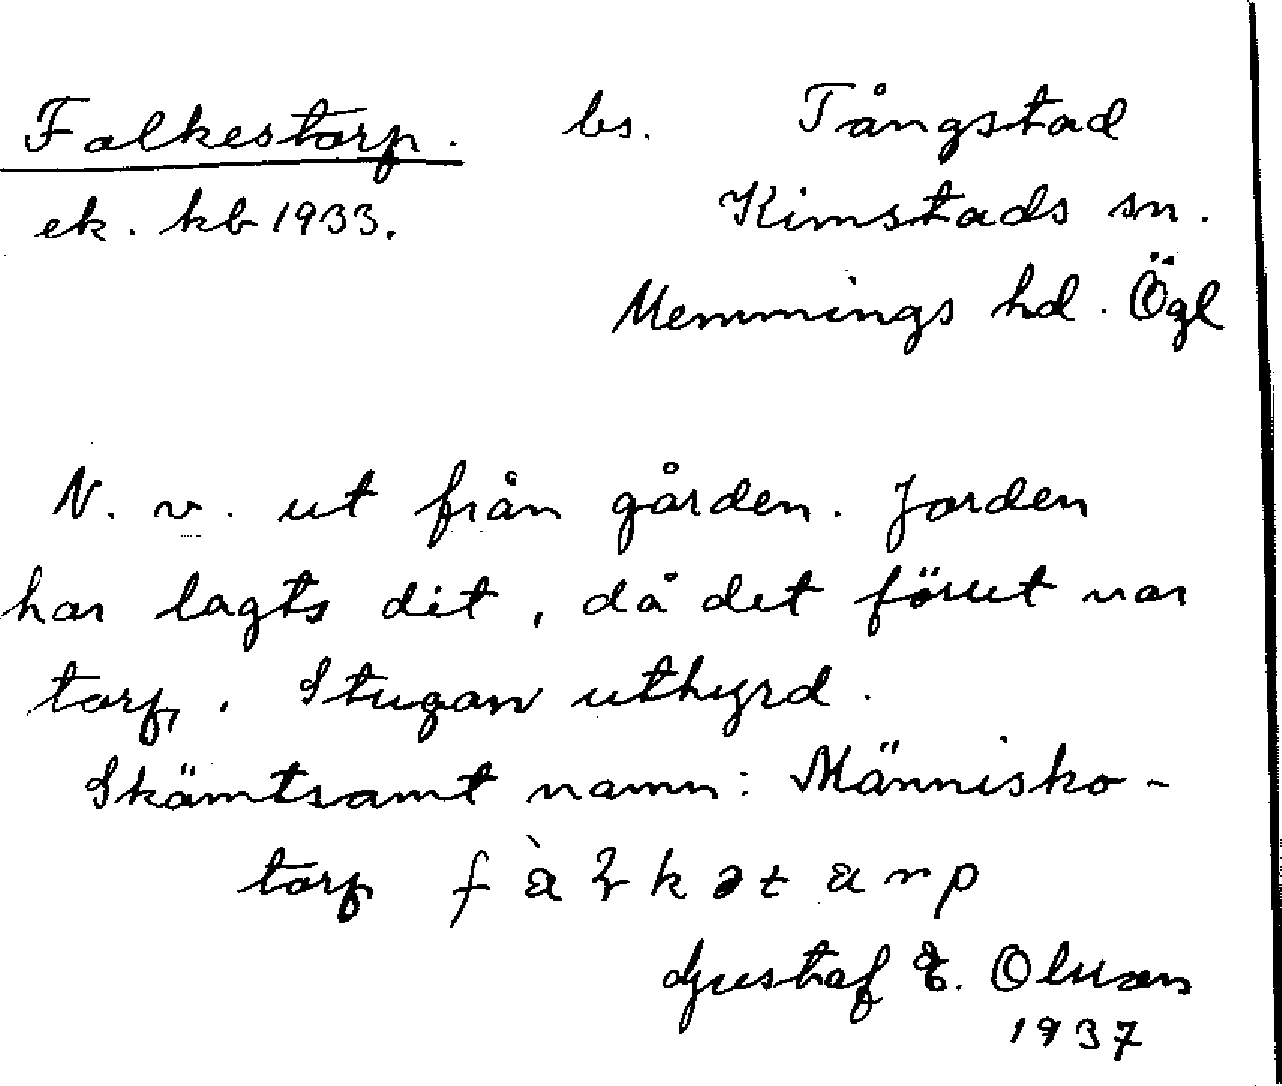 Falkestorp. bs. Tångstad
ek. kb 1933. Kimstads sn.
Memmings hd. Ögl
N. v. ut från gården. Jorden
har lagts dit, då det förut var
torp. Stugan uthyrd.
Skämtsamt namn: Människo-
torp
Gustaf E. Olsson
1937